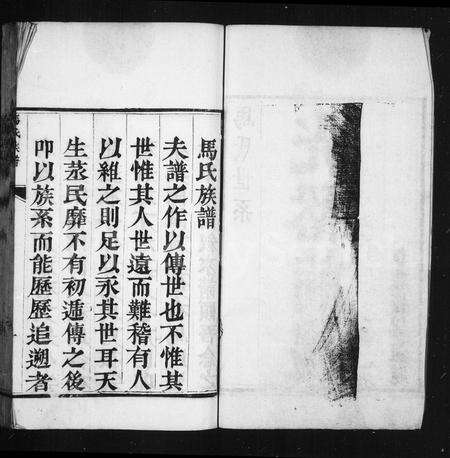 馬氏族譜
夫譜之作以傳世也不惟其
世惟其人世遠而難稽有人
以維之則足以永其世耳天
生蒸民靡不有初遞傳之後
叩以族系而能歷歷追遡者